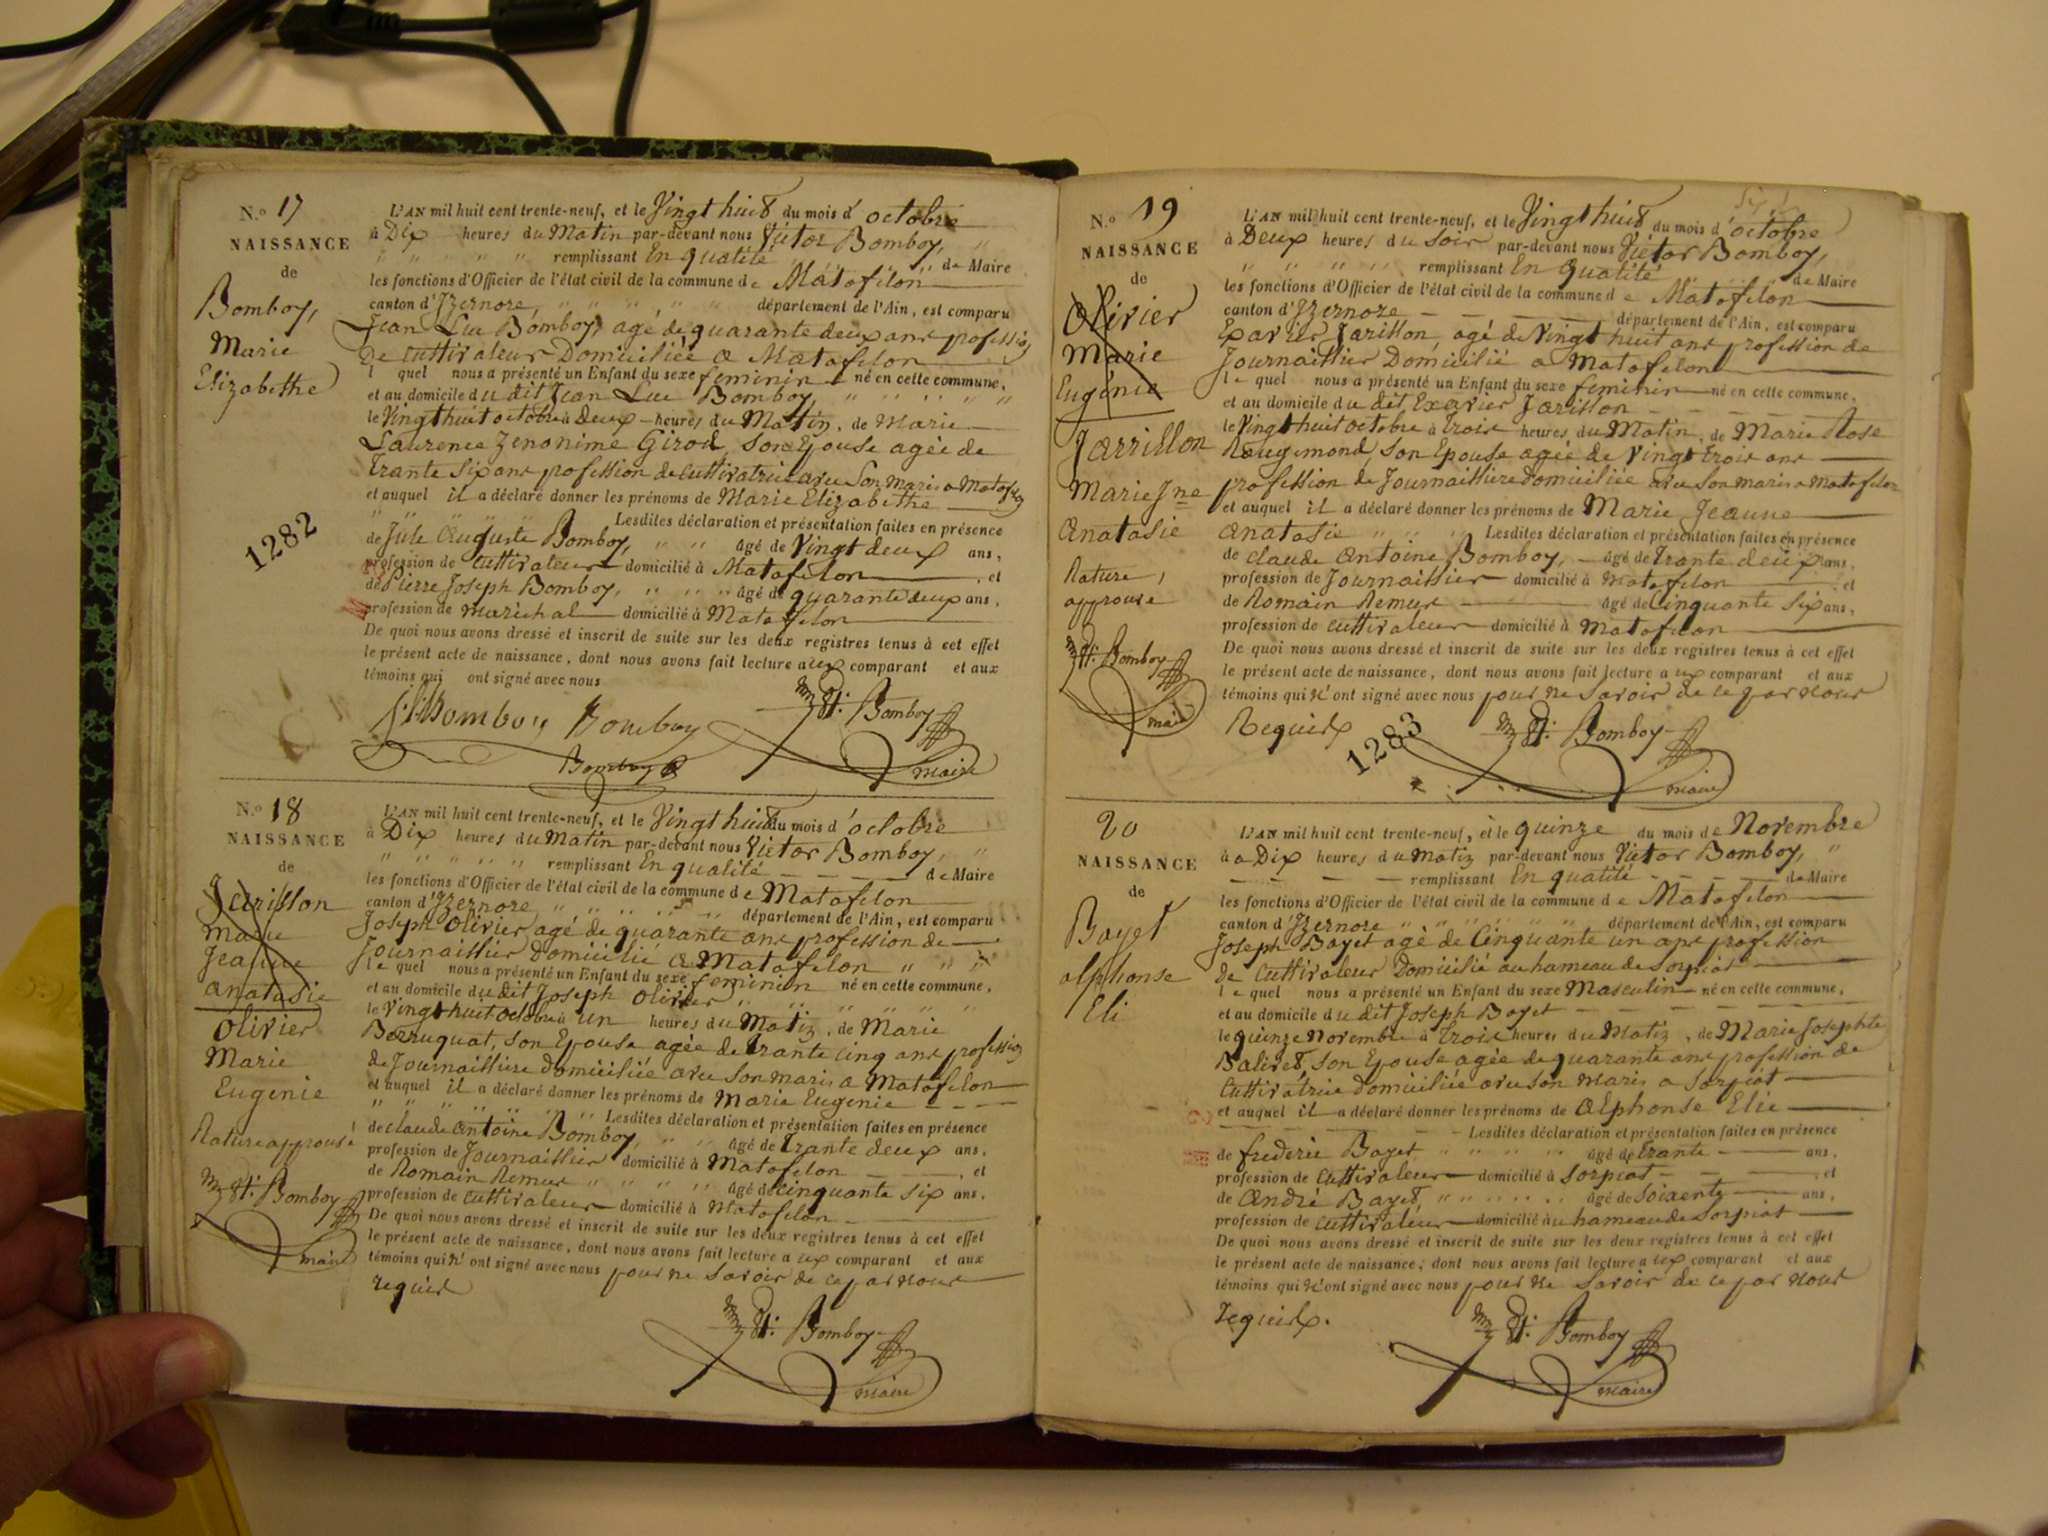 N.° 17
NAISSANCE
de
Bomboy,
Marie
Elizabethe
1282
L'AN mil huit cent trente-neuf, et le Vingt huit du mois d'octobre
à Dix heures du Matin par-devant nous Victor Bomboy,
remplissant En qualité de Maire
les fonctions d'Officier de l'état civil de la commune de Matafelon
canton d'Izernore, département de l'Ain, est comparu
Jean Luc Bomboy, agé de quarante deux ans profession
de cultivateur Domiciliée a Matafelon
lequel nous a présenté un Enfant du sexe feminin né en cette commune,
et au domicile du dit Jean Luc Bomboy,
le Vingt huit octobre à Deux heures du Matin, de Marie
Laurence Jenonime Girod, son Epouse agée de
trante six ans profession de cultivatrice avec son maris a Matafelon
et auquel il a déclaré donner les prénoms de Marie Elizabethe
Lesdites déclaration et présentation faites en présence
de Jule Auguste Bomboy, âgé de Vingt deux ans,
profession de cultivateur domicilié à Matafelon, et
de Pierre Joseph Bomboy, âgé de quarante deux ans,
profession de marechal domicilié à Matafelon
De quoi nous avons dressé et inscrit de suite sur les deux registres tenus à cet effet
le présent acte de naissance, dont nous avons fait lecture aux comparant et aux
témoins qui ont signé avec nous
Bomboy Bomboy Bomboy
Bomboy
maire
N.° 18
NAISSANCE
de
Jarisson
Marie
Jeanne
Anatasie
Olivier
Marie
Eugenie
Rature approuvé
Bomboy
maire
L'AN mil huit cent trente-neuf, et le Vingt huit du mois d'octobre
à Dix heures du Matin par-devant nous Victor Bomboy,
remplissant En qualité de Maire
les fonctions d'Officier de l'état civil de la commune de Matafelon
canton d'Izernore département de l'Ain, est comparu
Joseph Olivier agé de quarante ans profession de
Journaillier Domicilié a Matafelon
lequel nous a présenté un Enfant du sexe feminin né en cette commune,
et au domicile du dit Joseph Olivier
le Vingt huit octobre à un heures du Matin, de Marie
Borruquat, son Epouse agée de trante cinq ans profession
de Journailliere domiciliée avec son maris a Matafelon
et auquel il a déclaré donner les prénoms de Marie Eugenie
Lesdites déclaration et présentation faites en présence
de claude antoine Bomboy, âgé de trante deux ans,
profession de Journaillier domicilié à Matafelon, et
de Romain Remur âgé de cinquante six ans,
profession de cultivateur domicilié à Matafelon
De quoi nous avons dressé et inscrit de suite sur les deux registres tenus à cet effet
le présent acte de naissance, dont nous avons fait lecture aux comparant et aux
témoins qui n'ont signé avec nous pour ne savoir de ce par nous
requis
Bomboy
maire
N.° 19
NAISSANCE
de
Olivier
Marie
Eugénie
Jarrillon
Marie Jne
Anatasie
Rature,
approuvé
Bomboy
maire
L'AN mil huit cent trente-neuf, et le Vingt huit du mois d'octobre
à Deux heures du soir par-devant nous Victor Bomboy,
remplissant En qualité de Maire
les fonctions d'Officier de l'état civil de la commune de Matafelon
canton d'Izernore département de l'Ain, est comparu
Exavier Jarisson, agé de Vingt huit ans profession de
Journaillier Domicilié a Matafelon
lequel nous a présenté un Enfant du sexe feminin né en cette commune,
et au domicile du dit Exavier Jarisson
le Vingt huit octobre à trois heures du Matin, de Marie Rose
Rougemond, son Epouse agée de Vingt trois ans
profession de Journailliere domiciliée avec son maris a Matafelon
et auquel il a déclaré donner les prénoms de Marie Jeanne
Anatasie Lesdites déclaration et présentation faites en présence
de claude Antoine Bomboy, âgé de trante deux ans,
profession de Journaillier domicilié à Matafelon, et
de Romain Remur âgé de Cinquante six ans,
profession de cultivateur domicilié à Matafelon
De quoi nous avons dressé et inscrit de suite sur les deux registres tenus à cet effet
le présent acte de naissance, dont nous avons fait lecture aux comparant et aux
témoins qui n'ont signé avec nous pour ne savoir de ce par nous
Requis
1283
Bomboy
maire
20
NAISSANCE
de
Bayet
alphonse
Eli
L'AN mil huit cent trente-neuf, et le quinze du mois de Novembre
à Dix heures du Matin par-devant nous Victor Bomboy,
remplissant En qualité de Maire
les fonctions d'Officier de l'état civil de la commune de Matafelon
canton d'Izernore département de l'Ain, est comparu
Joseph Bayet agé de Cinquante un ans profession
de cultivateur Domicilié au hameau de Sorpiat
lequel nous a présenté un Enfant du sexe Masculin né en cette commune,
et au domicile du dit Joseph Bayet
le quinze Novembre à trois heures du Matin, de Marie Josephte
Balivet, son Epouse agée de quarante ans profession de
Cultivatrice domiciliée avec son Maris a Sorpiat
et auquel il a déclaré donner les prénoms de Alphonse Elie
Lesdites déclaration et présentation faites en présence
de frederic Bayet âgé de trante ans,
profession de cultivateur domicilié à Sorpiat, et
de André Bayet, âgé de soixente ans,
profession de cultivateur domicilié au hameau de Sorpiat
De quoi nous avons dressé et inscrit de suite sur les deux registres tenus à cet effet
le présent acte de naissance, dont nous avons fait lecture aux comparant et aux
témoins qui n'ont signé avec nous pour ne savoir de ce par nous
requis.
Bomboy
maire